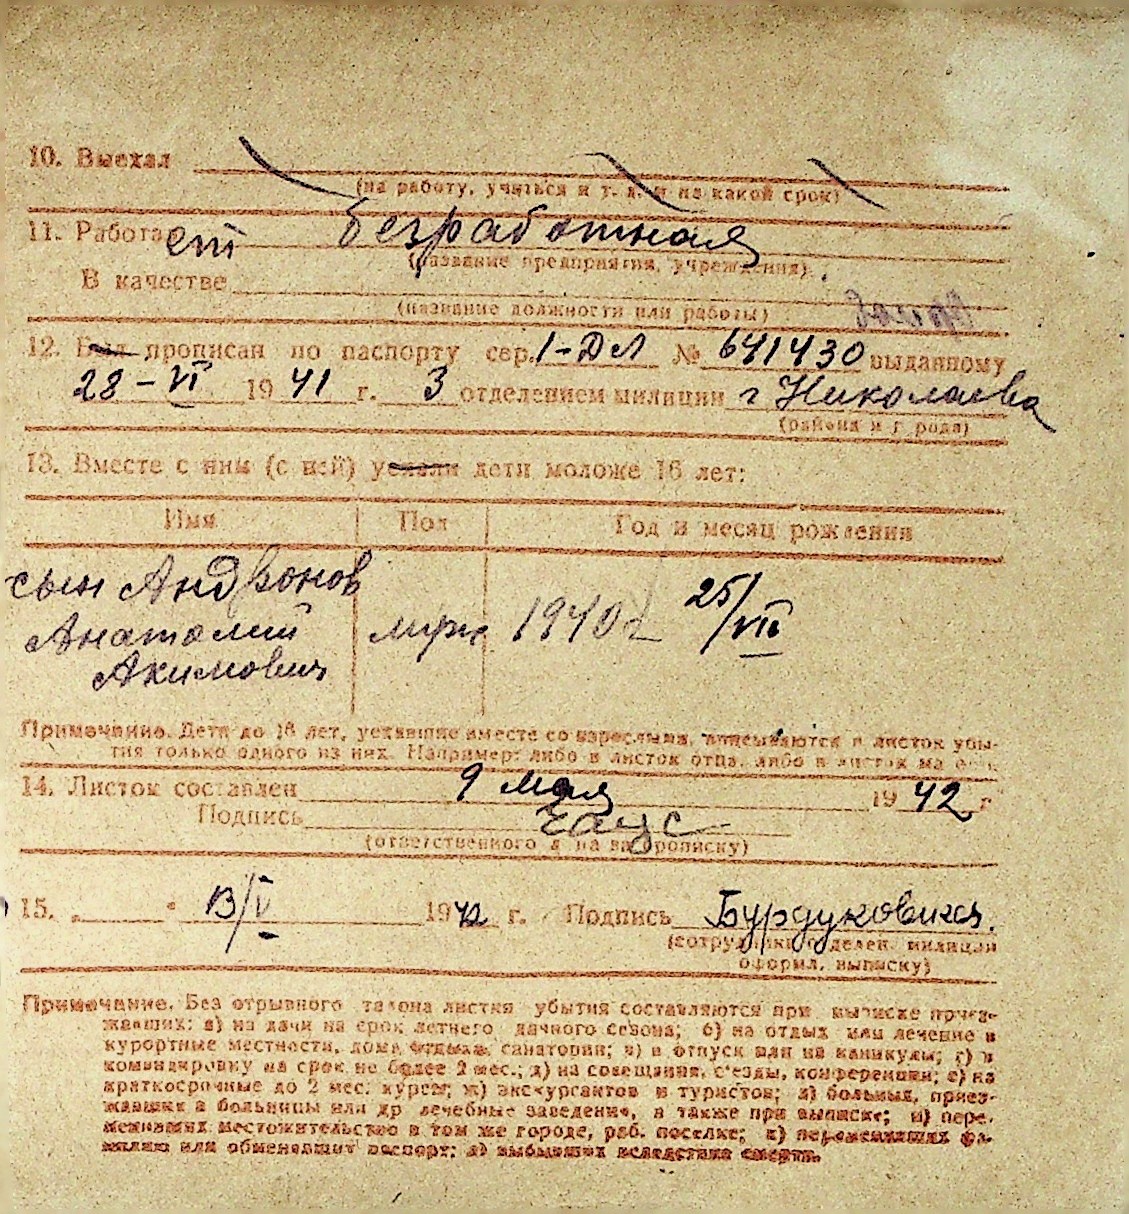 10. Выехал
(на работу, учиться и т. д. и на какой срок)
11. Работает Безработная
(название предприятия, учреждения)
В качестве
(название должности или работы)
12. Был прописан по паспорту сер. 1-ДЛ № 641430 выданному
28-VI 1941 г. 3 отделением милиции г Николаева
(района и города)
13. Вместе с ним (с ней) уехали дети моложе 16 лет:
Имя Пол Год и месяц рождения
сын Андронов
Анатолий муж 1940 25/VII
Акимович
Примечание. Дети до 16 лет, уехавшие вместе со взрослыми, вписываются в листок убы-
тия только одного из них. Например: либо в листок отца, либо в листок
14. Листок составлен 9 мая 1942 г
Подпись
(ответственного за прописку)
15. „ “ 13/V 1942 г. Подпись
(сотрудник отделен. милиции
оформл. выписку)
Примечание. Без отрывного талона листки убытия составляются при выписке приез-
жавших: а) на дачи на срок летнего дачного сезона; б) на отдых или лечение в
курортные местности, дома отдыха, санатории; в) в отпуск или на каникулы; г) в
командировку на срок не более 2 мес.; д) на совещания, съезды, конференции; е) на
краткосрочные до 2 мес. курсы; ж) экскурсантов и туристов; з) больных, приез-
жавших в больницы или др лечебные заведения, а также при выписке; и) пере-
менивших местожительство в том же городе, раб. поселке; к) переменивших фа-
милию или обменявших паспорт; л) выбывших вследствие смерти.